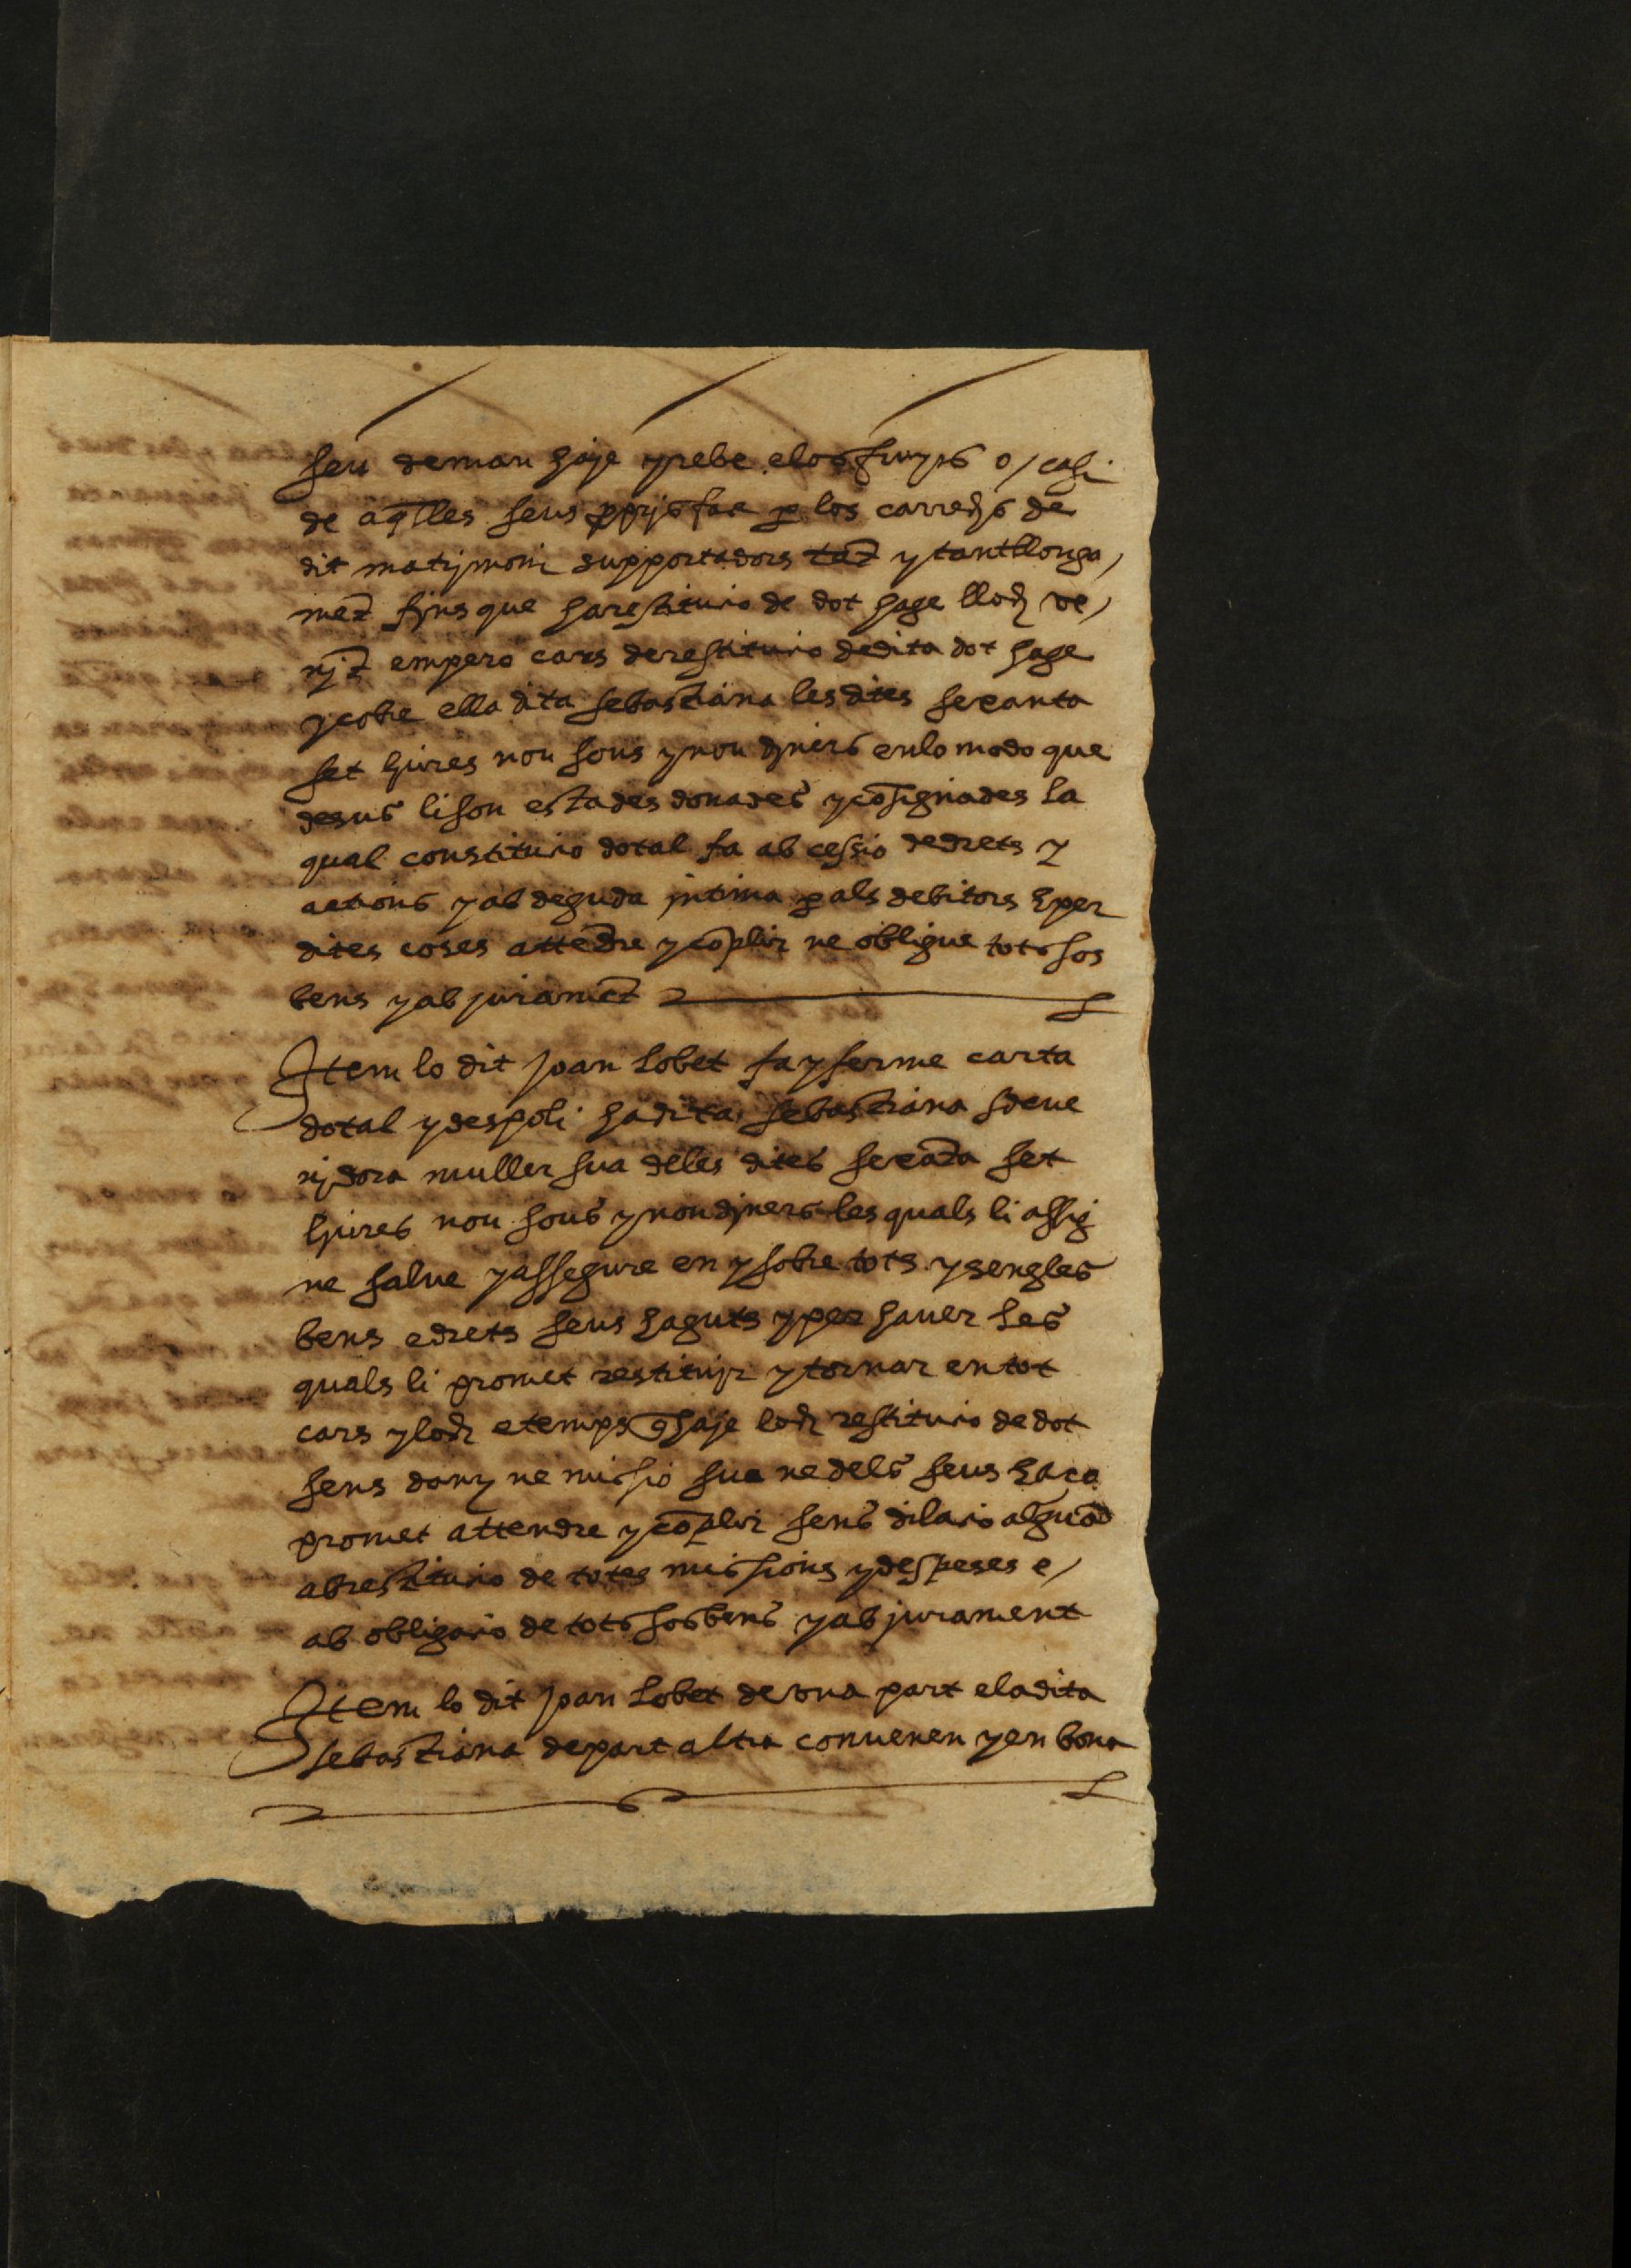 seu deman haje y rebe e los fruyts o, casi
de aq̃lles seus ꝓprjs fae ꝑ los carrechs de
dit matrjmoni supportadors tãt y tant llonga,
mẽt fjns que ha restitucio de dot hage lloch ve,
njt̃ empero cars de restitucio de dita dot hage
y cobre ella dita Sebastiana les dites sexanta
set lliures nou sous y nou djners en lo modo que
desus li son estades donades y cõsignades La
qual constitucio dotal fa ab cessio de drets y
actions y ab deguda jntima ꝑ als debitors E per
dites coses attẽdre y cõplir ne obligue tots sos
bens y ab juramẽt
Item lo dit Joan Lobet fa y ferme carta
dotal y despoli ha dita Sebastiana sdeue
njdora muller sua de les dites sexãta set
lliures nou sous y nou djners les quals li assig
ne salue y assegure en y sobre tots y sengles
bens e drets seus haguts y per hauer Les
quals li promet restituyr y tornar en tot
cars y loch e temps q̃ haje loch restitucio de dot
sens dany ne missio sua ne dels seus E aço
promet attendre y cõplir sens dilacio alguã
ab restitucio de totes missions y despeses e,
ab obligacio de tots sos bens y ab jurament
Item lo dit Joan Lobet de vna part e la dita
Sebastiana de part altra conuenen y en bona